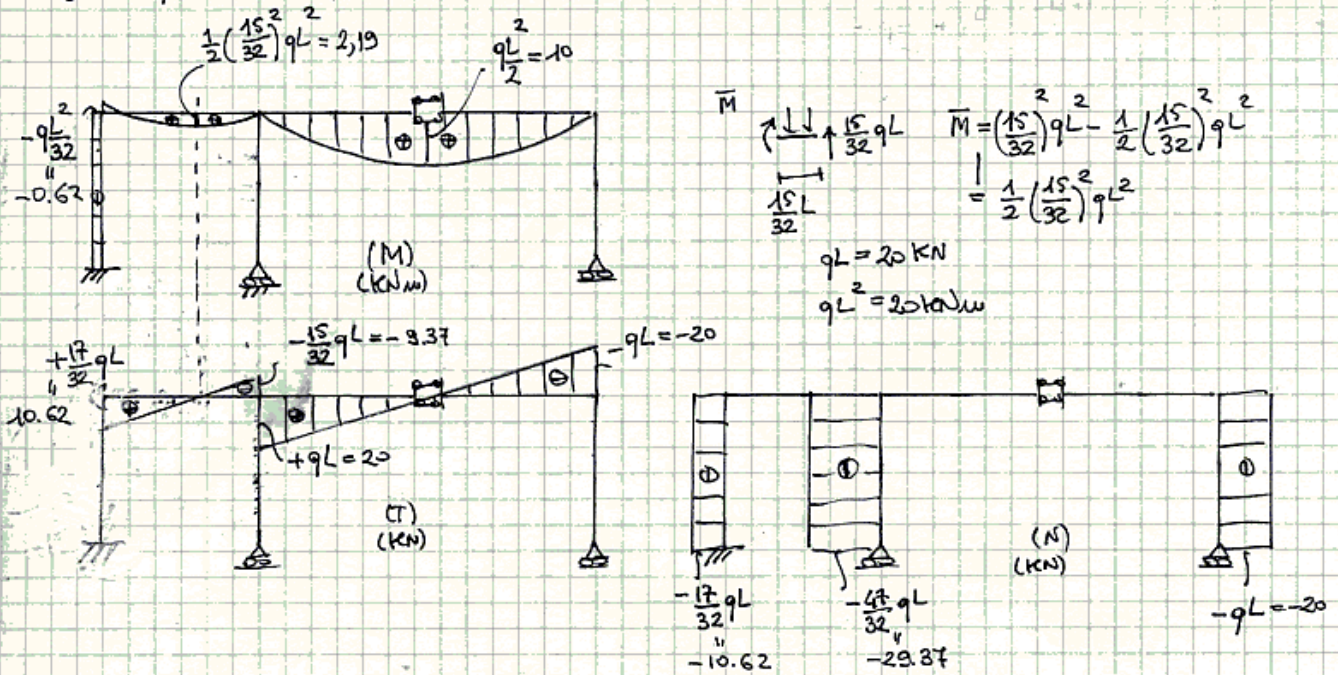 ½(15/32)²qL² = 2,19
qL²/2 = 10
-qL²/32
"
-0.62
(M)
(KNm)
M̄
15/32 qL
15/32 L
M̄ = (15/32)²qL² - ½(15/32)²qL²
= ½(15/32)²qL²
qL = 20 KN
qL² = 20 KNm
+17/32 qL
"
10.62
-15/32 qL = -9.37
-qL = -20
+qL = 20
(T)
(KN)
(N)
(KN)
-17/32 qL
"
-10.62
-47/32 qL
"
-29.37
-qL = -20